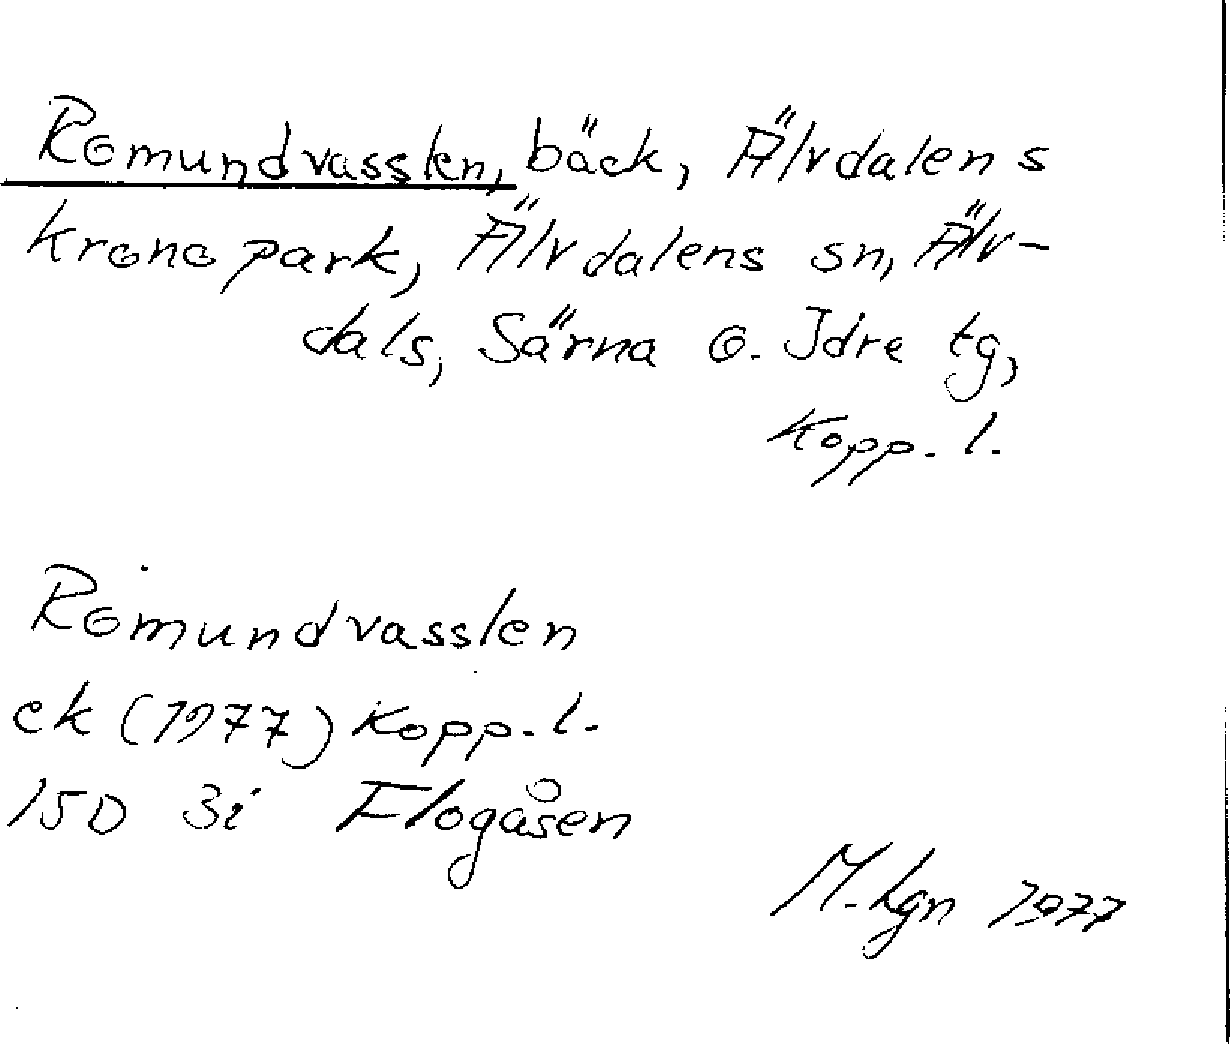 Romundvasslen, bäck, Älvdalens
kronopark, Älvdalens sn, Älv-
dals, Särna o. Idre tg,
Kopp. l.
Romundvasslen
ek (1977) Kopp. l.
15D 3i Flogåsen
M. Lgn 1977